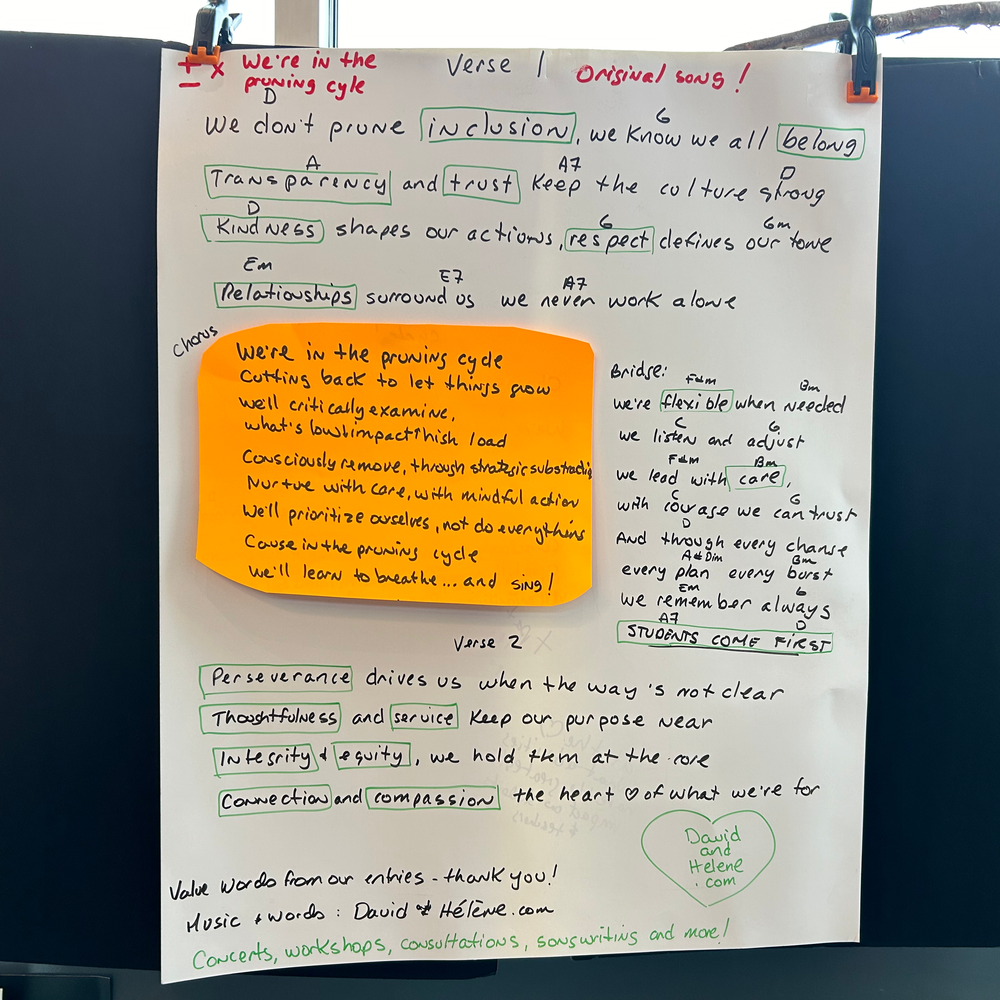 + x
− We're in the
pruning cyle
Verse 1
Original song!
D G
We don't prune inclusion, we know we all belong
A A7 D
Transparency and trust keep the culture strong
D G Gm
Kindness shapes our actions, respect defines our tone
Em E7 A7
Relationships surround us we never work alone
Chorus
We're in the pruning cycle
Cutting back to let things grow
We'll critically examine,
what's low↓impact↑high load
Consciously remove, through strategic substraction
Nurture with care, with mindful action
We'll prioritize ourselves, not do everything
Cause in the pruning cycle
We'll learn to breathe... and sing!
Bridge:
F#m Bm
we're flexible when needed
C G
we listen and adjust
F#m Bm
we lead with care,
C G
with courage we can trust
D
And through every change
A#Dim Bm
every plan every burst
Em G
we remember always
A7 D
STUDENTS COME FIRST
Verse 2
Perseverance drives us when the way's not clear
Thoughtfulness and service keep our purpose near
Integrity + equity, we hold them at the core
Connection and compassion the heart ♡ of what we're for
David
and
Helene
.com
Value words from our entries - thank you!
Music + words: David + Hélène.com
Concerts, workshops, consultations, songwriting and more!